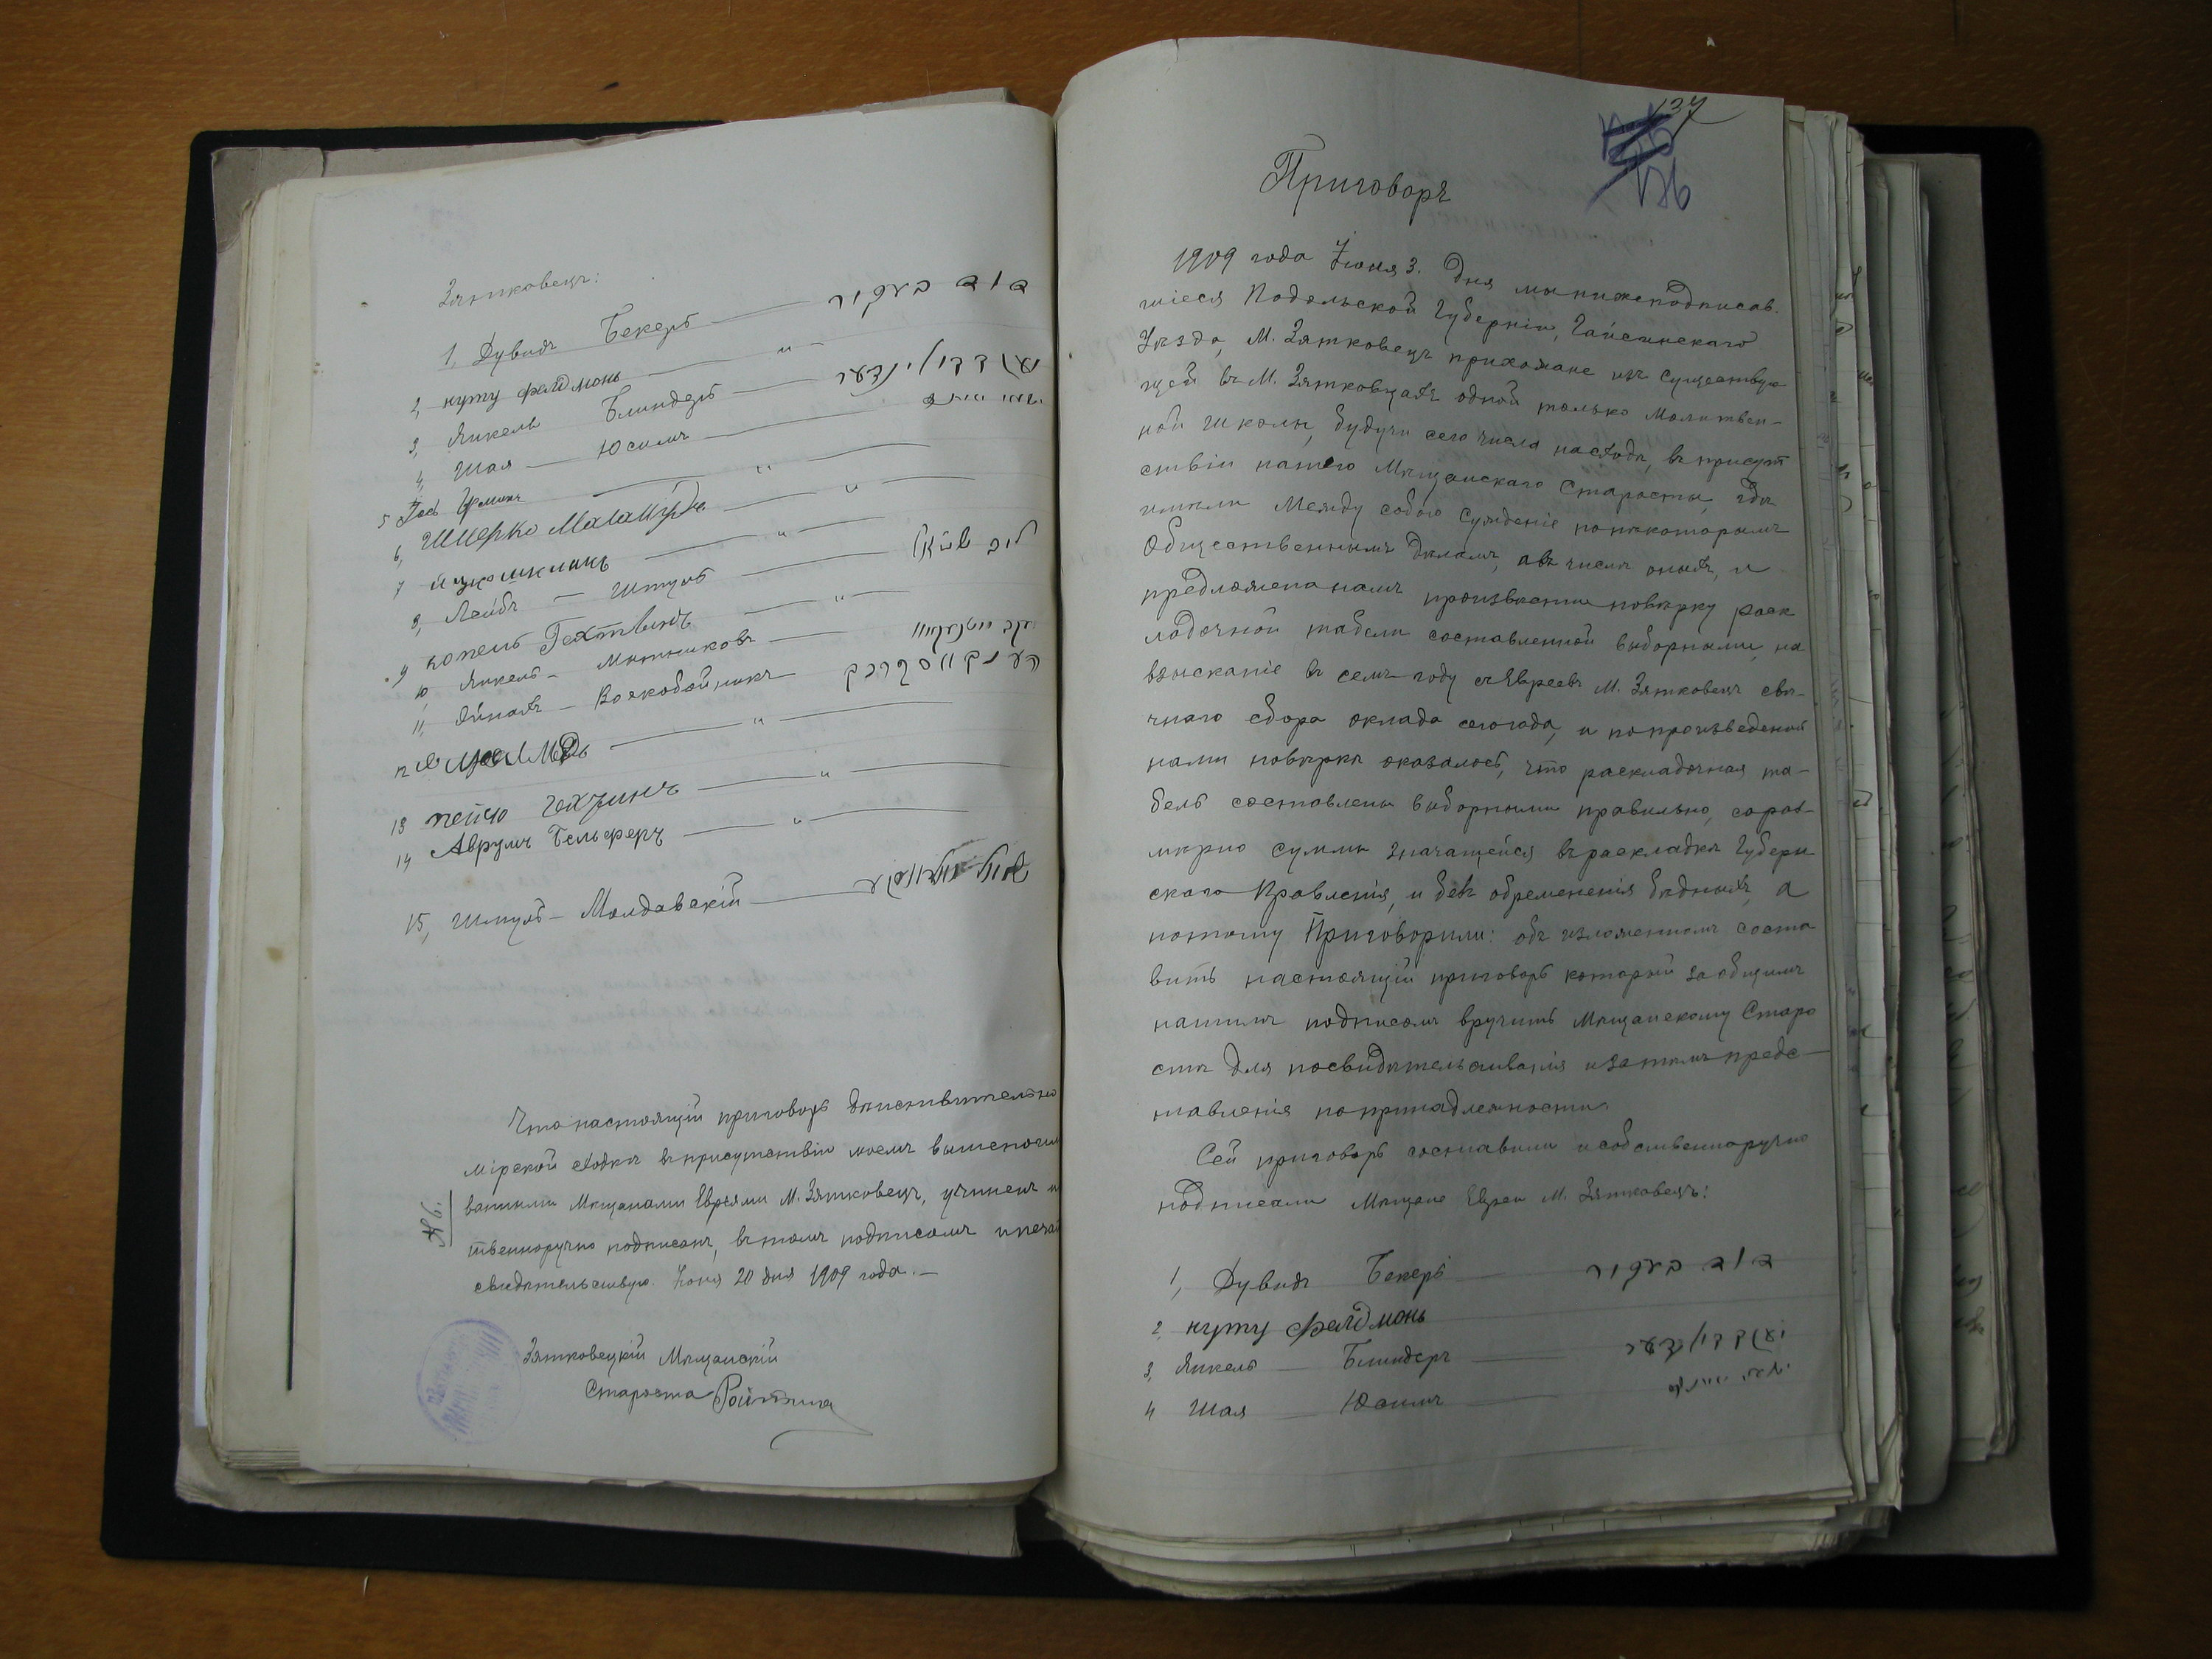 Зятковецъ:
1, Дувидъ Бекеръ — דוד בעקיר
2, нуту фелдмонь — " —
3, Янкель Блиндеръ
4, Шая — Юсимъ
5 — " —
6, Шмерко — " —
7 — " —
8, Лейбъ — Штулъ
9 — " —
10 Янкель — Мительниковъ
11, Айнохъ — Воскобойникъ
12 — " —
13 — " —
14, Аврумъ Бельферъ — " —
15, Шмуль — Молдавскій
Что настоящій приговоръ дѣйствительно
мірской сходкѣ въ присутствіи моемъ
ванными Мѣщанами Евреями М. Зятковецъ, учиненъ и
твенноручно подписанъ, въ томъ подписомъ и печат
свидѣтельствую. Іюня 20 дня 1909 года. —
№ 6.
Зятковецкій Мѣщанскій
Староста
137
136
Приговоръ
1909 года Іюня 3. дня мы нижеподписав.
шіеся Подольской Губерніи, Гайсинскаго
Уѣзда, М. Зятковецъ прихожане изъ существую
щей въ М. Зятковцахъ одной только Молитвен-
ной школы, будучи сего числа на сходѣ, въ присут
ствіи нашего Мѣщанскаго Старосты, гдѣ
имѣли Между собою Сужденіе по нѣкоторымъ
Общественнымъ дѣламъ, а въ числѣ оныхъ, и
предложено намъ произвести повѣрку раск
ладочной табели составленной выборными, на
взысканіе въ семъ году съ Евреевъ М. Зятковецъ свѣ-
чнаго сбора оклада сего года, и по произведеной
нами повѣркѣ оказалось, что раскладочная та-
бель составлена выборными правильно, сораз-
мѣрно суммы значащейся въ раскладкѣ Губерн
скаго Правленія, и безъ обремененія бѣдныхъ, а
потому Приговорили: объ изложенномъ соста
вить настоящій приговоръ который за общимъ
нашимъ подписомъ вручить Мѣщанскому Старо
стѣ для посвидѣтельствованія и затѣмъ предс-
тавленія по принадлежности.
Сей приговоръ составили и собственноручно
подписали Мѣщане Евреи М. Зятковецъ:
1, Дувидъ Бекеръ — דוד בעקיר
2, нуту фелдмонь
3, Янкель — Блиндеръ
4 Шая — Юсимъ